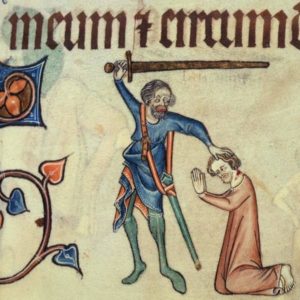 meum ⁊ circumd